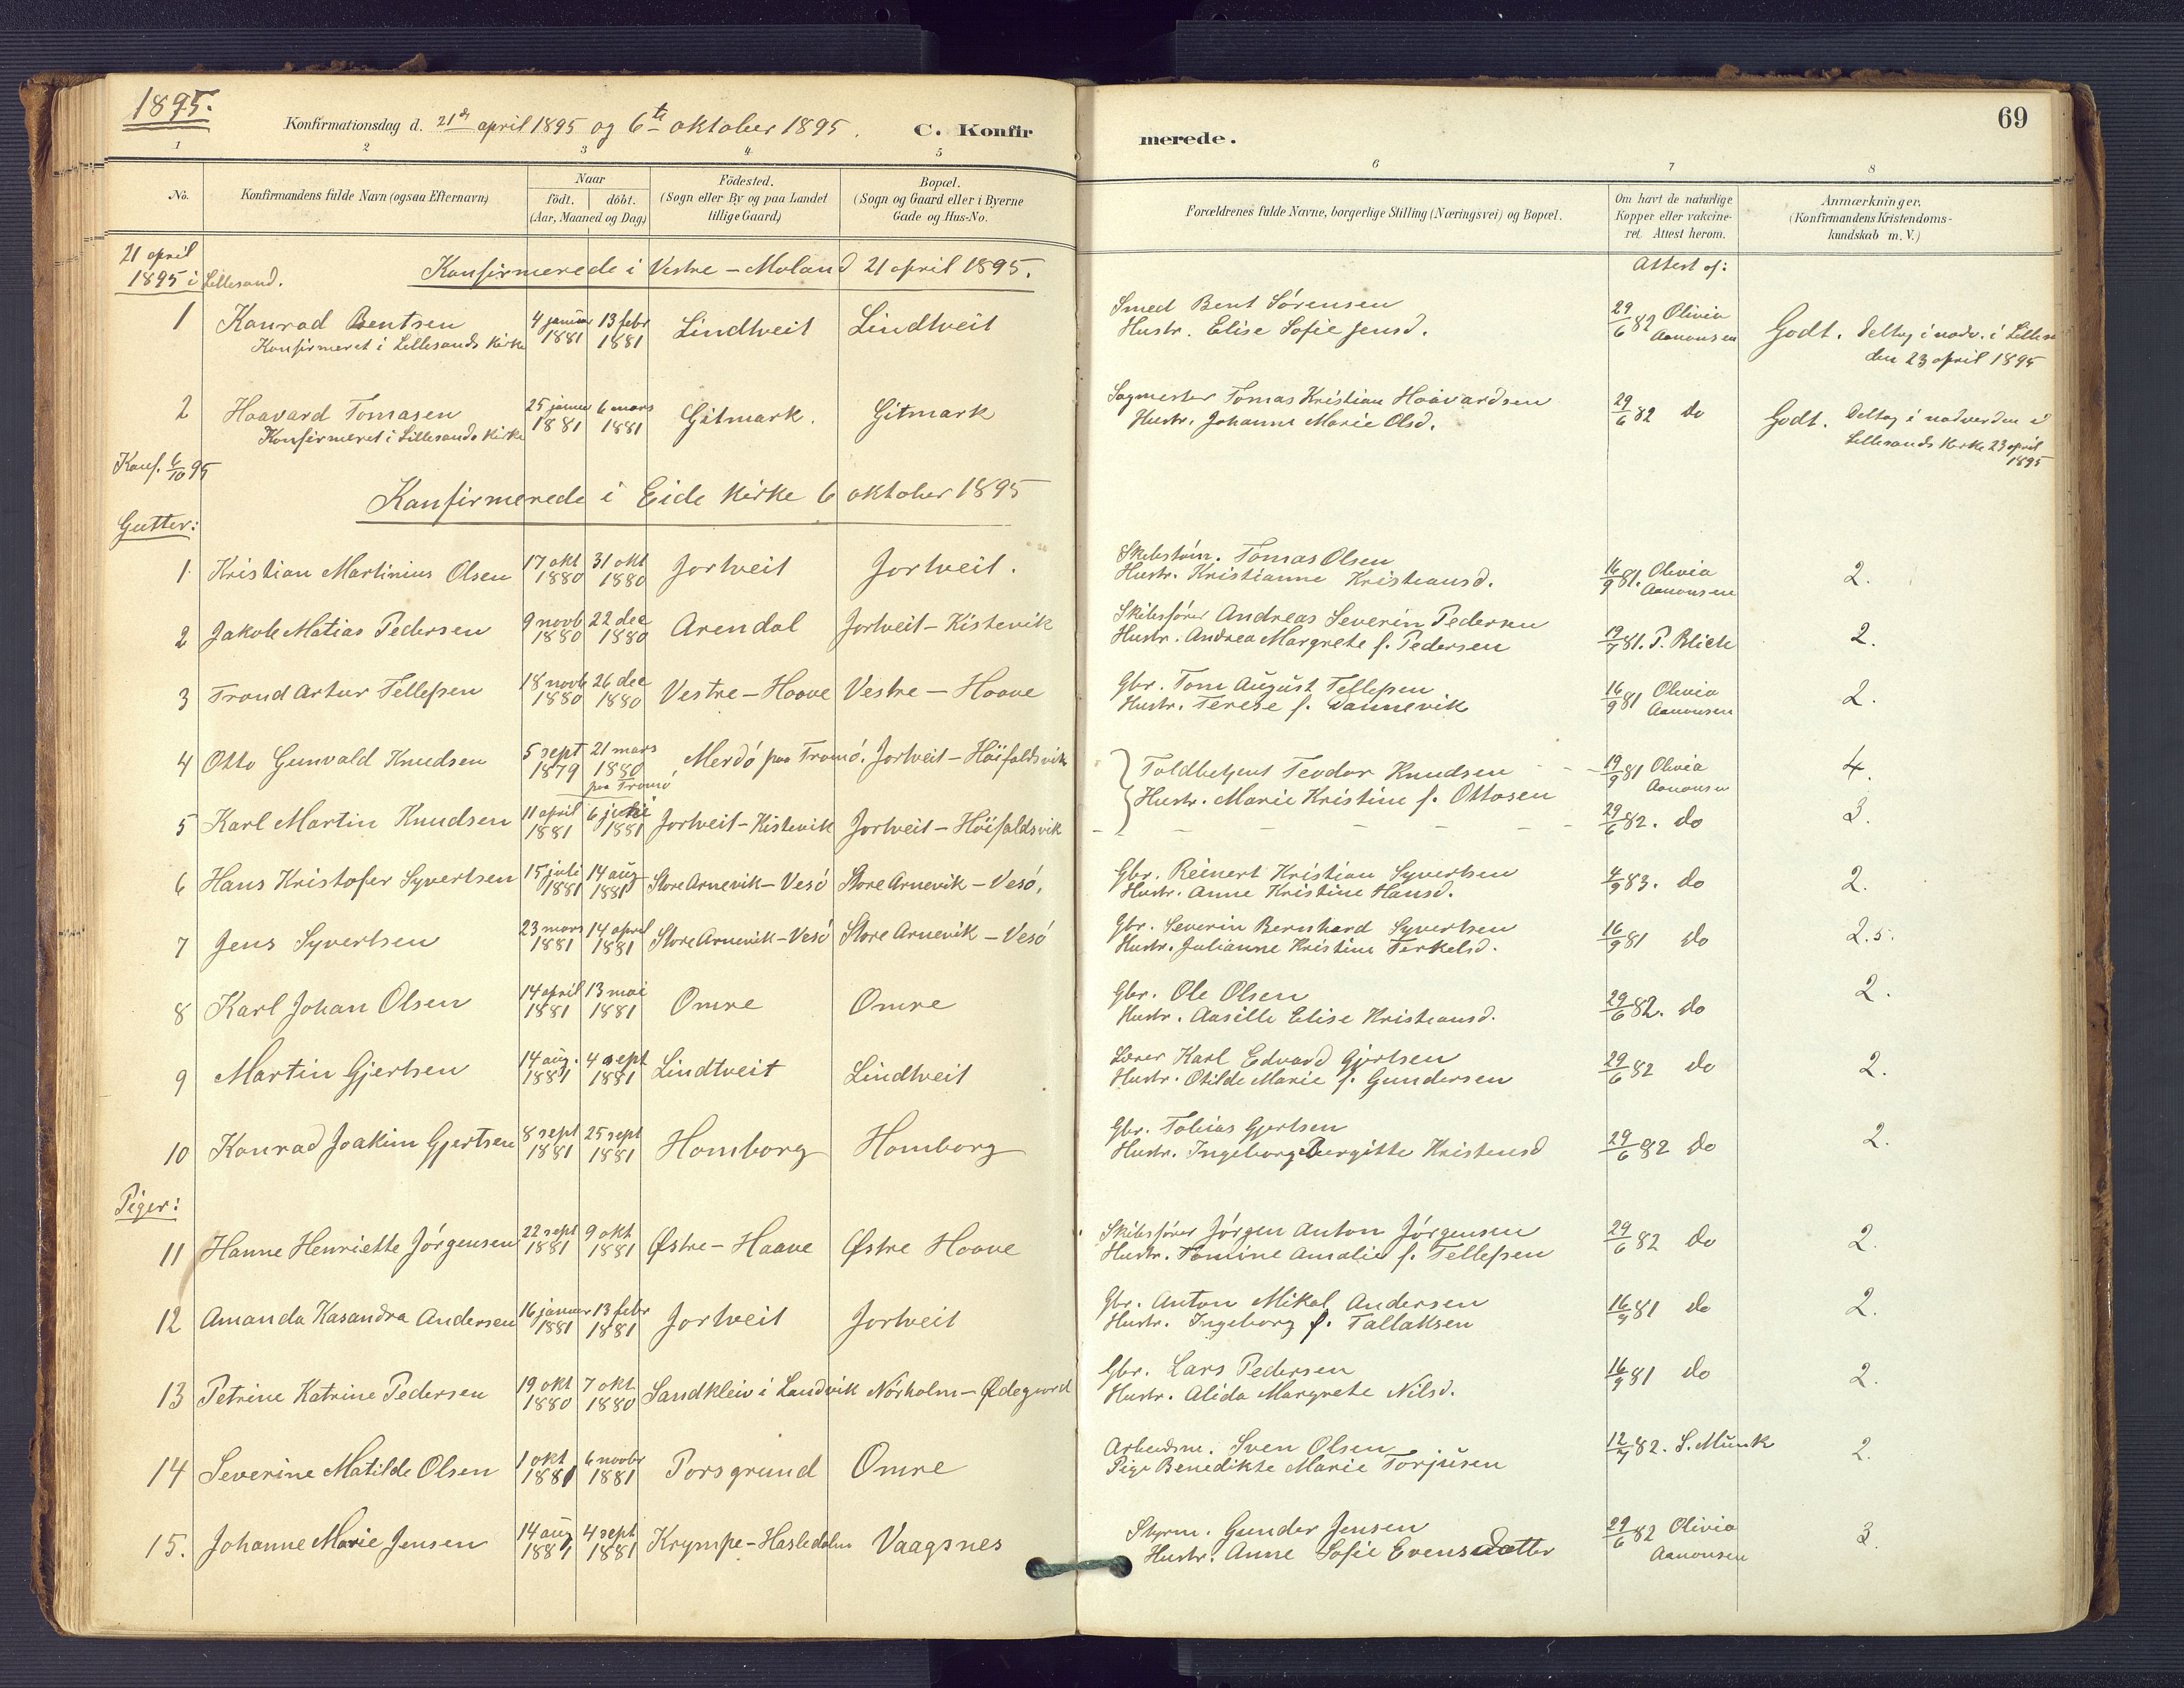 1895.
Konfirmationsdag d. 21de april 1895 og 6te oktober 1895. C. Konfirmerede. 69
1 2 3 4 5 6 7 8
No. Konfirmandens fulde Navn (ogsaa Efternavn) Naar Födested. Bopæl. Forældrenes fulde Navne, borgerlige Stilling (Næringsvei) og Bopæl. Om havt de naturlige Anmærkninger.
födt. döbt. (Sogn eller By og paa Landet (Sogn og Gaard eller i Byerne Kopper eller vakcine- (Konfirmandens Kristendoms-
(Aar, Maaned og Dag) tillige Gaard) Gade og Hus-No. ret. Attest herom. kundskab m. V.)
21 april
1895 i Lillesand. Konfirmerede i Vestre-Moland 21 april 1895. Attest af:
1 Konrad Bentsen 4 januar 1881 13 febr 1881 Lindtveit Lindtveit Smed Bent Sörensen 29/6 82 Olivia Aanonsen Godt. Deltog i nadv. i
Konfirmeret i Lillesands Kirke Hustr. Elise Sofie Jensd. den 23 april 1895
2 Haavard Tomasen 25 januar 1881 6 mars 1881 Gitmark. Gitmark Sagmester Tomas Kristian Haavardsen 29/6 82 do Godt. Deltog i nadverden i
Konfirmeret i Lillesands Kirke Hustr. Johanne Marie Olsd. Lillesands Kirke 23 april 1895
Konf. 6/10 95
Konfirmerede i Eide Kirke 6 oktober 1895
Gutter:
1. Kristian Martinius Olsen 17 okt 1880 31 okt 1880 Jortveit Jortveit. Skibstöm. Tomas Olsen 16/9 81. Olivia Aanonsen 2.
Hustr. Kristianne Kristiansd.
2 Jakob Matias Pedersen 9 novb 1880 22 dec 1880 Arendal Jortveit-Kistevik Skibsförer Andreas Severin Pedersen 19/7 81. P. Blich 2.
Hustr. Andrea Margrete f. Pedersen
3 Trond Artur Tellefsen 18 novb 1880 26 dec 1880 Vestre-Haave Vestre-Haave Gbr. Tom August Tellefsen 16/9 81 Olivia Aanonsen 2.
Hustr. Terese f. Vannevik
4 Otto Gunvald Knudsen 5 sept 1879 21 mars 1880 paa Tromö Merdö paa Tromö. Jortveit-Höifaldsvik Toldbetjent Teodor Knudsen 19/9 81 Olivia Aanonsen 4.
Hustr. Marie Kristine f. Ottosen
5 Karl Martin Knudsen 11 april 1881 6 juni 1881 Jortveit-Kistevik Jortveit-Höifaldsvik 29/6 82. do 3.
6 Hans Kristofer Syvertsen 15 juli 1881 14 aug 1881 Store Arnevik-Vesö Store Arnevik-Vesö. Gbr. Reinert Kristian Syvertsen 4/9 83. do 2.
Hustr. Anne Kristine Hansd.
7 Jens Syvertsen 23 mars 1881 14 april 1881 Store Arnevik-Vesö Store Arnevik-Vesö Gbr. Severin Bernhard Syvertsen 16/9 81 do 2.5.
Hustr. Julianne Kristine Terkelsd.
8 Karl Johan Olsen 14 april 1881 13 mai 1881 Omre Omre Gbr. Ole Olsen 29/6 82. do 2.
Hustr. Aasille Elise Kristiansd.
9 Martin Gjertsen 14 aug. 1881 4 sept 1881 Lindtveit Lindtveit Lærer Karl Edvard Gjertsen 29/6 82 do 2.
Hustr. Otilde Marie f. Gundersen
10 Konrad Joakim Gjertsen 8 sept 1881 25 sept 1881 Homborg Homborg Gbr. Tobias Gjertsen 29/6 82 do 2.
Hustr. Ingeborg Burgitte Kristensd
Piger:
11 Hanne Henriette Jörgensen 22 sept 1881 9 okt 1881 Østre-Haave Østre Haave Skibsförer Jörgen Anton Jörgensen 29/6 82 do 2.
Hustr. Tomine Amalie f. Tellefsen
12 Amanda Kasandra Andersen 16 januar 1881 13 febr 1881 Jortveit Jortveit Gbr. Anton Mikal Andersen 16/9 81 do 2.
Hustr. Ingeborg f. Tallaksen
13 Petrine Katrine Pedersen 19 okt 1880 7 okt 1880 Sandkleiv i Landvik Nörholm-Ødegaard Gbr. Lars Pedersen 16/9 81 do 2.
Hustr. Alida Margrete Nilsd.
14 Severine Matilde Olsen 1 okt 1881 6 novbr 1881 Porsgrund Omre Arbeidsm. Sven Olsen 12/7 82. S. Munk 2.
Pige Benedikte Marie Torjusen
15. Johanne Marie Jensen 14 aug 1881 4 sept 1881 Krympe-Hasledalen Vaagsnes Styrm. Gunder Jensen 29/6 82 Olivia Aanonsen 3.
Hustr. Anne Sofie Evensdatter